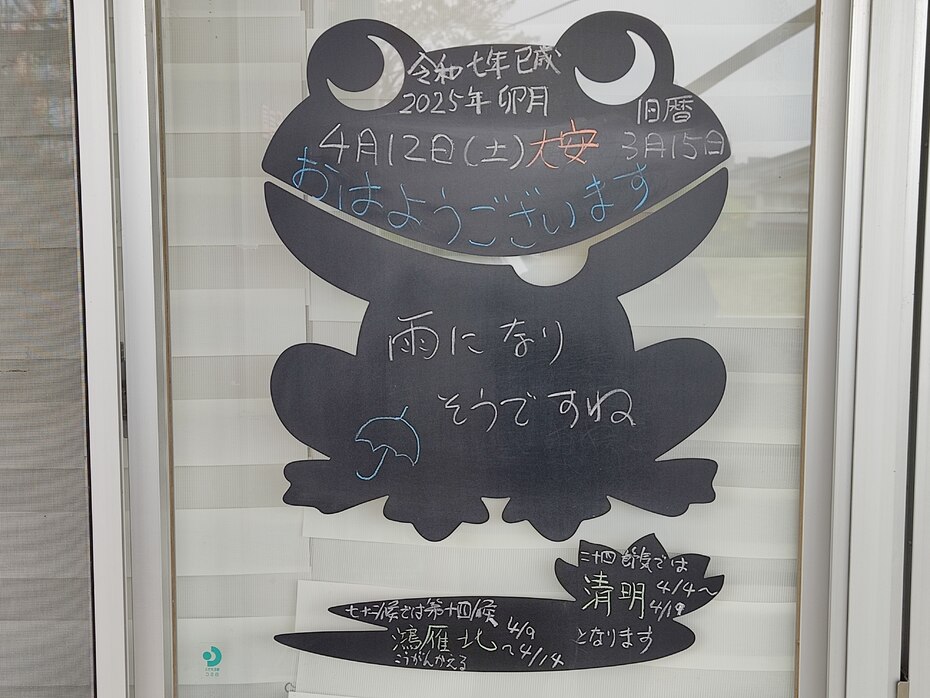 令和七年乙巳歳
2025年 卯月
旧暦
4月12日(土)大安 3月15日
おはようございます
雨になり
そうですね
二十四節気では
清明 4/4〜
4/19
となります
七十二候では第十四候
鴻雁北 4/9
〜4/14
こうがんかえる